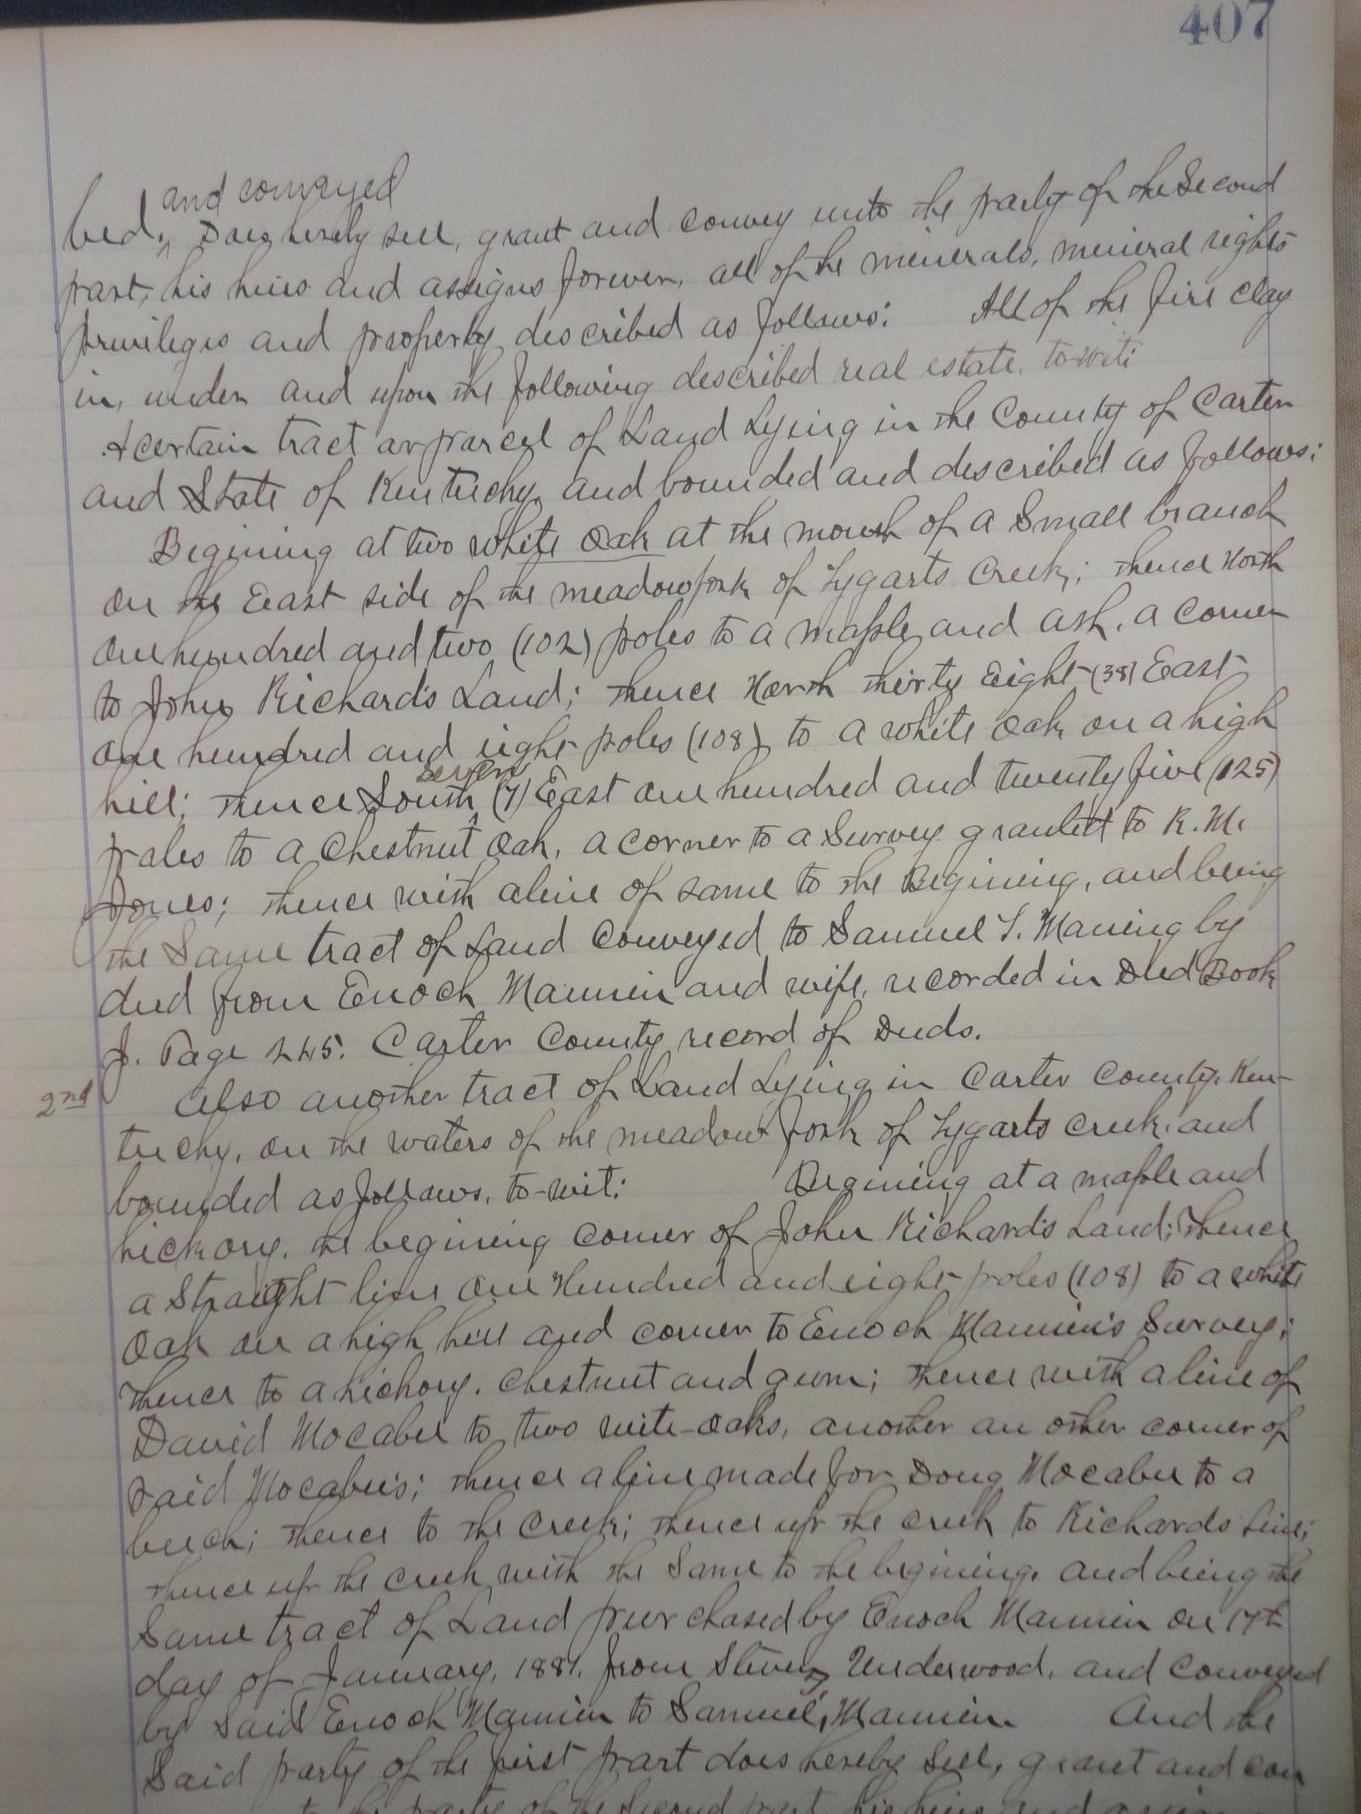 407
and conveyed
bed, Does hereby sell, grant and convey unto the party of the Second
part, his heirs and assigns forever, all of the minerals, mineral rights
privileges and property described as follows: All of the fire clay
in, under and upon the following described real estate, to-wit:
A certain tract or parcel of Land Lying in the County of Carter
and State of Kentucky, and bounded and described as follows:
Begining at two white Oak at the mouth of a Small branch
on the East side of the meadow fork of Tygarts Creek; thence North
one hundred and two (102) poles to a maple and ash, a Corner
to John Richards Land; thence North thirty Eight (38) East
one hundred and eight poles (108) to a white Oak on a high
seven
hill; thence South (7) East one hundred and twenty five (125)
poles to a Chestnut Oak, a corner to a Survey granted to R. M.
Jones; thence with a line of same to the Begining, and being
the Same tract of Land Conveyed to Samuel T. Maning by
deed from Enoch Mannin and wife, recorded in Deed Book
J. Page 245. Carter County record of Deeds.
2nd Also another tract of Land Lying in Carter County, Ken-
tucky, on the waters of the meadow fork of Tygarts creek, and
bounded as follows, to-wit: Begining at a maple and
hickory, the begining corner of John Richards Land; Thence
a Straight line one Hundred and eight poles (108) to a white
Oak on a high hill and corner to Enoch Mannin's Survey;
thence to a hickory, chestnut and gum; thence with a line of
David Mocabee to two wite-oaks, another an other corner of
said Mocabee's; thence a line made for Doug Mocabee to a
beech; thence to the creek; thence up the creek to Richards Line;
thence up the creek with the Same to the begining, and being the
Same tract of Land purchased by Enoch Mannin on 17th
day of January, 1881, from Underwood, and conveyed
by Said Enoch Mannin to Samuel Mannin. And the
Said party of the first part does hereby Sell, grant and con
to the party of the Second part, his heirs and